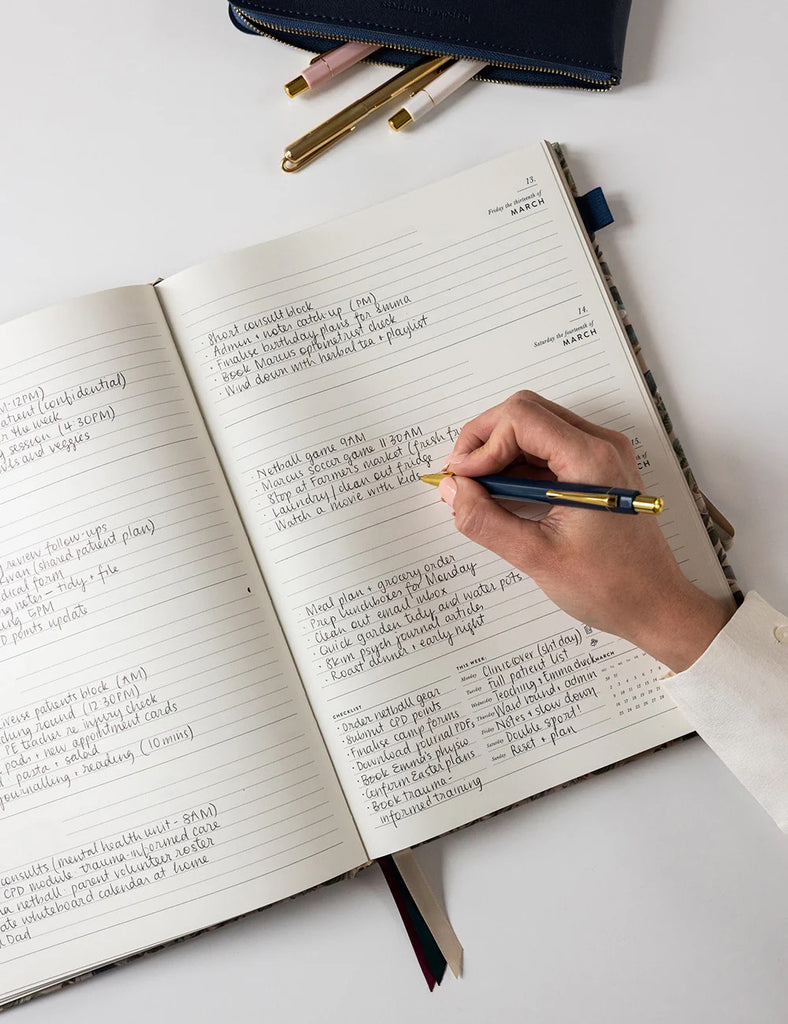 M-12PM)
atient (confidential)
r the week
session (4:30PM)
wls and veggies
review follow-ups
van (shared patient plan)
dical form
ng notes - tidy + file
ning 5PM
D points update
iverse patients block (AM)
ching round (12:30PM)
PE teacher re injury check
pads + new appointment cards
pasta + salad
journalling + reading (10 mins)
consults (mental health unit - 8AM)
CPD module: trauma-informed care
na netball: parent volunteer roster
ate whiteboard calendar at home
Dad
13.
Friday the thirteenth of
MARCH
· Short consult block
· Admin + notes catch up (PM)
· Finalise birthday plans for Emma
· Book Marcus optometrist check
· Wind down with herbal tea + playlist
14.
Saturday the fourteenth of
MARCH
· Netball game 9AM
· Marcus soccer game 11:30AM
· Stop at Farmer's market (fresh fru
· Laundry / clean out fridge
· Watch a movie with kids
15.
CH
· Meal plan + grocery order
· Prep lunchboxes for Monday
· Clean out email inbox
· Quick garden tidy and water pots
· Skim psych journal articles
· Roast dinner + early night
CHECKLIST
· Order netball gear
· Submit CPD points
· Finalise camp forms
· Download journal PDFs
· Book Emma's physio
· Confirm Easter plans
· Book trauma-
informed training
THIS WEEK:
Monday Clinic over (sht day)
Tuesday Full patient list
Wednesday Teaching + Emma check
Thursday Ward round + admin
Friday Notes + slow down
Saturday Double sport!
Sunday Reset + plan
MARCH